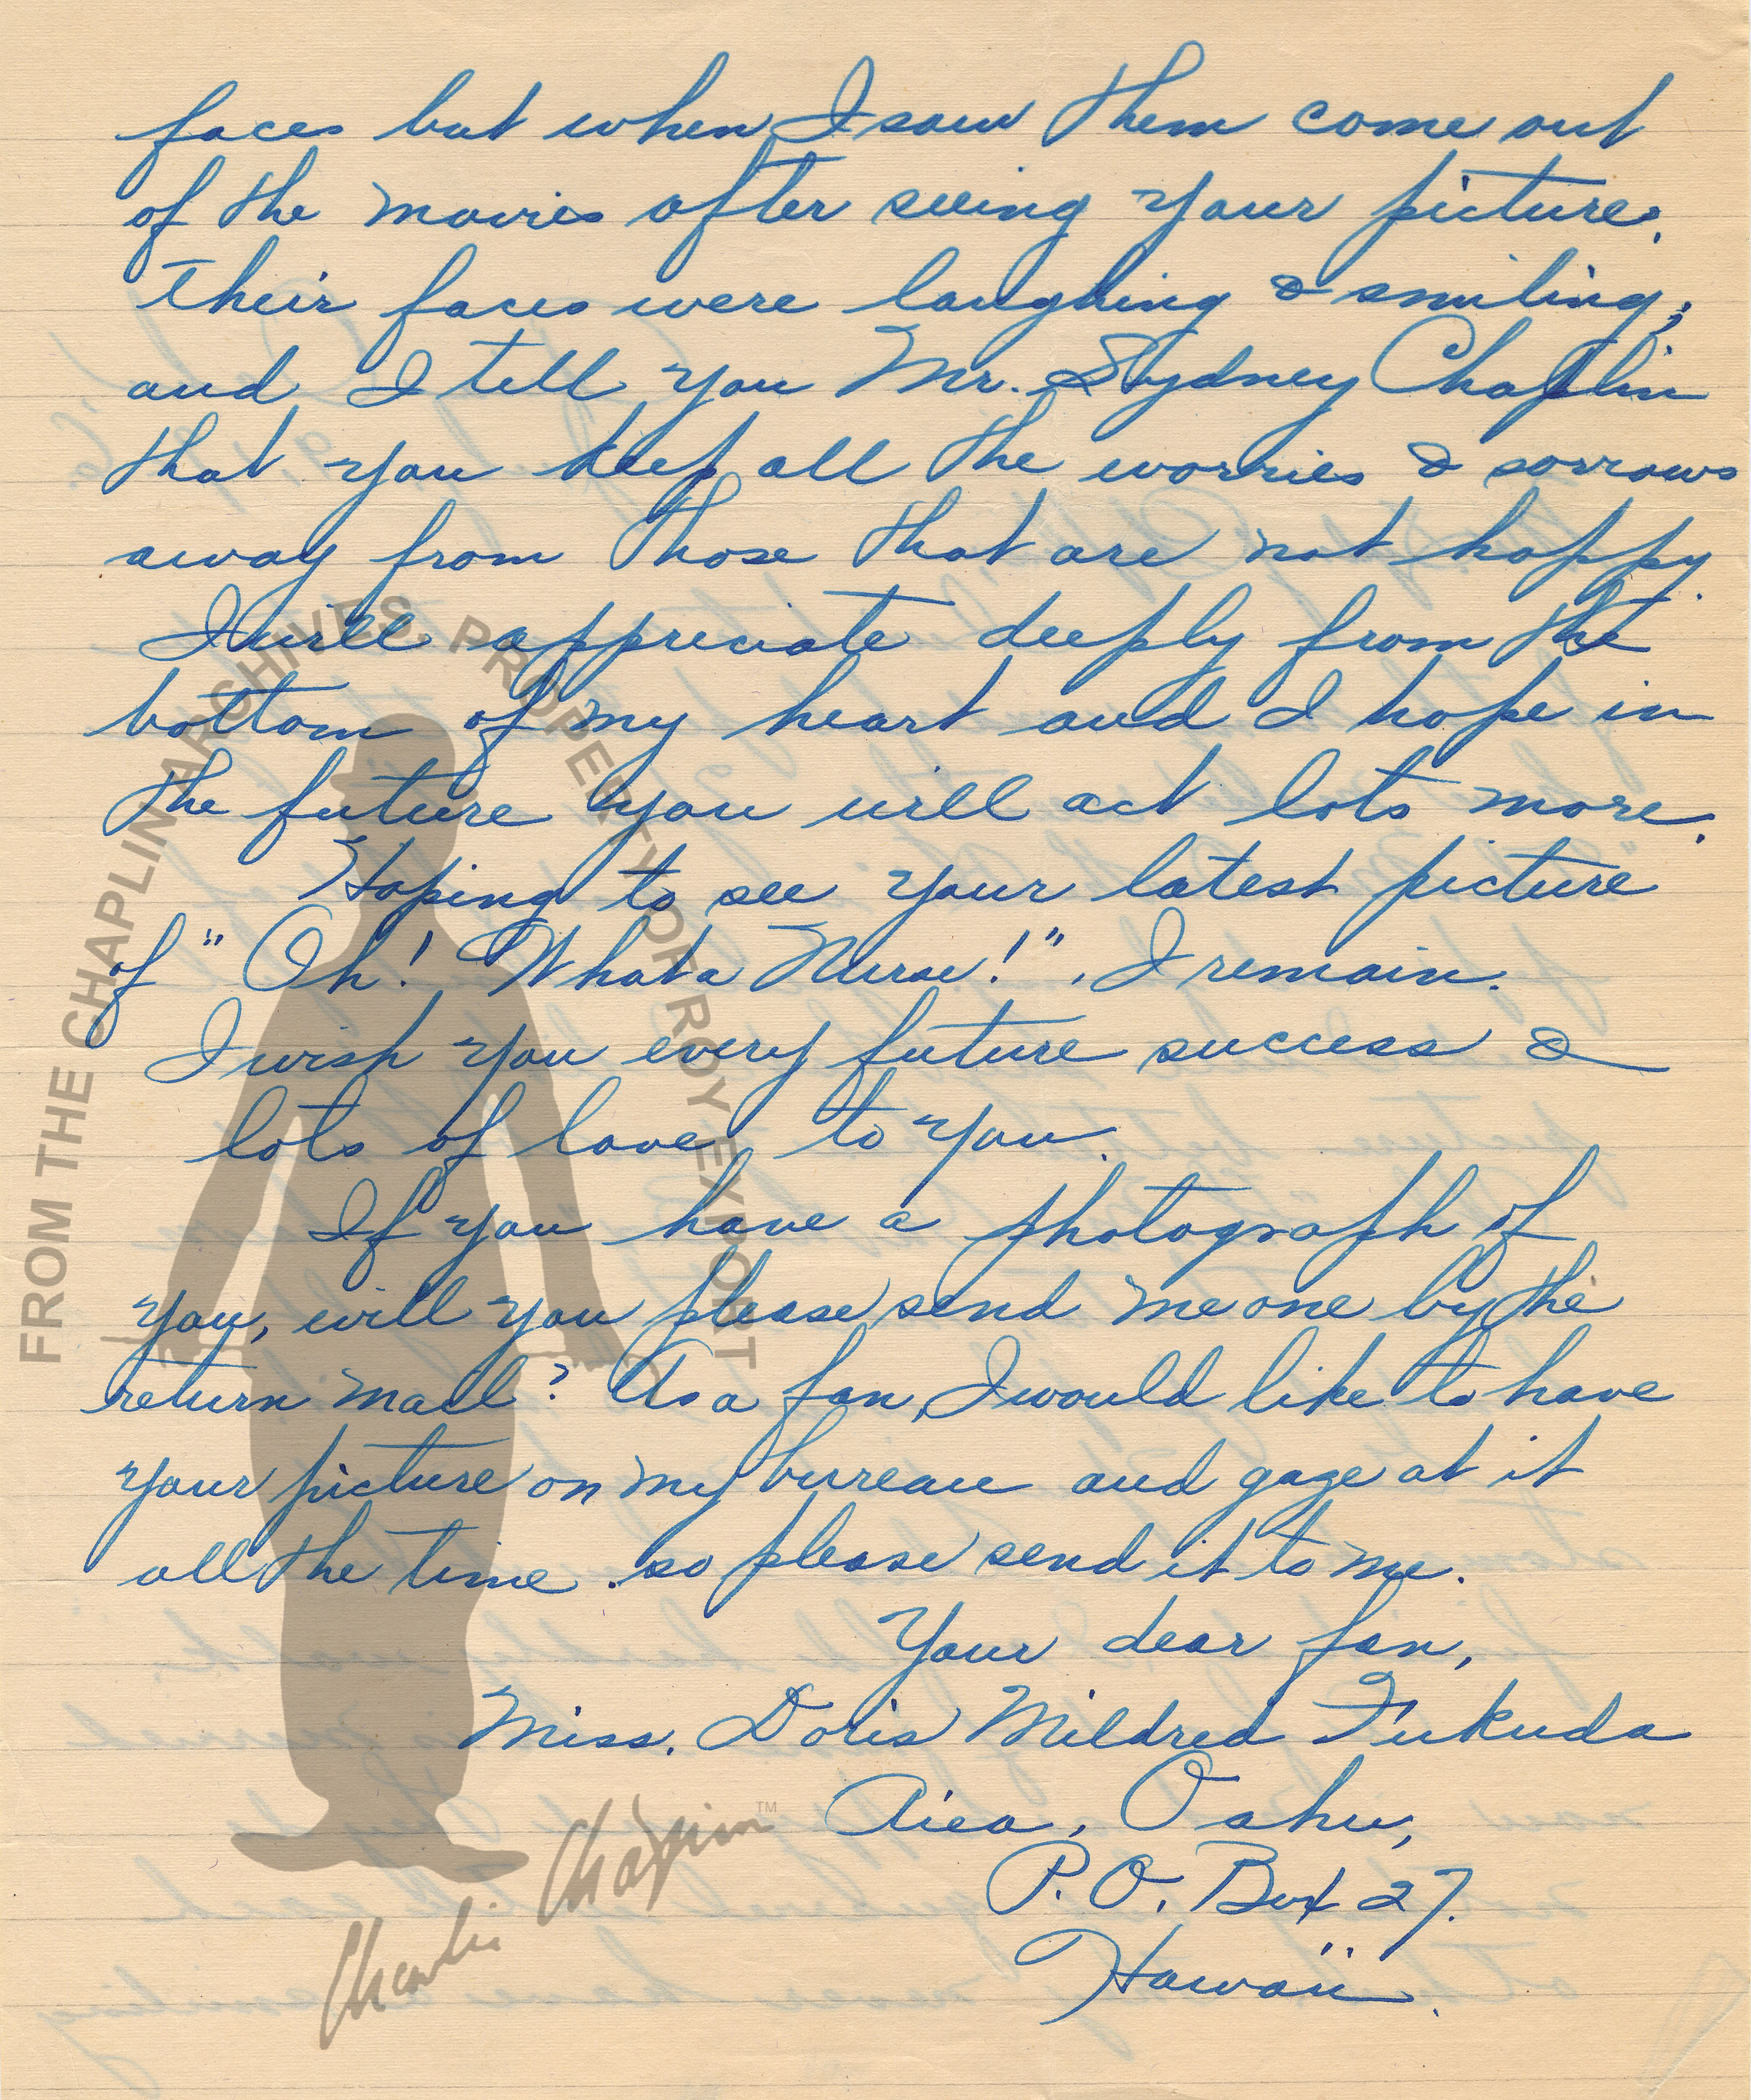 faces but when I saw them come out
of the movies after seeing your picture,
their faces were laughing & smiling;
and I tell you Mr. Sydney Chaplin
that you keep all the worries & sorrows
away from those that are not happy.
I will appreciate deeply from the
bottom of my heart and I hope in
the future you will act lots more.
Hoping to see your latest picture
of "Oh! What a Nurse!", I remain.
I wish you every future success &
lots of love to you.
If you have a photograph of
you, will you please send me one by the
return mail? As a fan, I would like to have
your picture on my bureau and gaze at it
all the time. so please send it to me.
Your dear fan,
Miss. Doris Mildred Fukuda
Aiea, Oahu,
P.O. Box 27.
Hawaii.
FROM THE CHAPLIN ARCHIVES, PROPERTY OF ROY EXPORT
Charlie Chaplin™